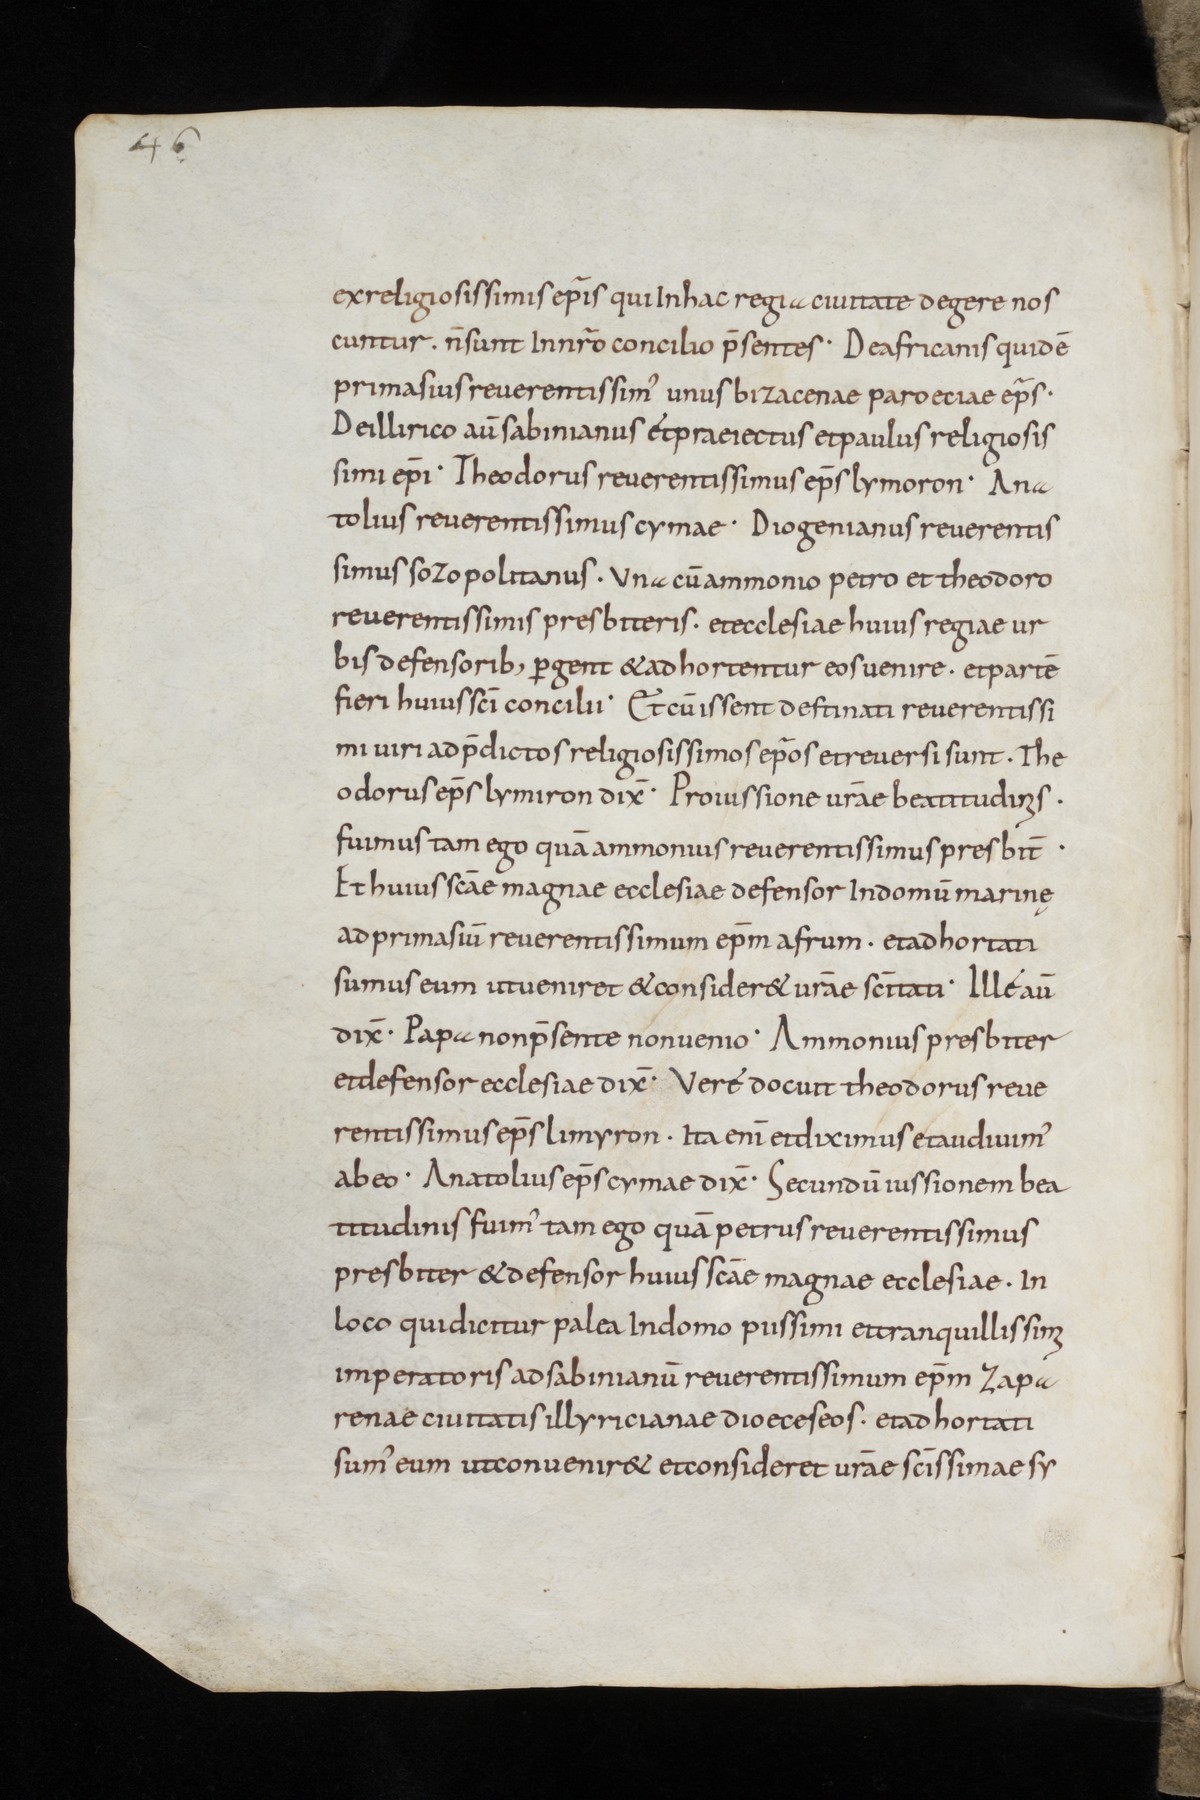 46
ex religiosissimis ep̄is qui In hac regia ciuitate degere nos
cuntur · n̄ sunt In nr̄o concilio p̄sentes · De africanis quidē
primasius reuerentissim' unus bizacenae paroeciae ep̄s ·
De illirico aū sabinianus & praeiectus et paulus religiosis
simi ep̄i · Theodorus reuerentissimus ep̄s lymoron · Ana
tolius reuerentissimus cymae · Diogenianus reuerentis
simus sozopolitanus · Vna cū ammonio petro et theodoro
reuerentissimis presbiteris · et ecclesiae huius regiae ur
bis defensorib; ꝑgent & adhortentur eos uenire · et partē
fieri huius sc̄i concilii · Et cū issent destinati reuerentissi
mi uiri ad p̄dictos religiosissimos ep̄os et reuersi sunt · The
odorus ep̄s lymiron dix̄ · Pro iussione ur̄ae beatitudinis ·
fuimus tam ego quā ammonius reuerentissimus presbit̄ ·
Et huius sc̄ae magnae ecclesiae defensor In domū marinę
ad primasiū reuerentissimum ep̄m afrum · et adhortati
sumus eum ut ueniret & consider& ur̄ae sc̄itati · Ille aū
dix̄ · Papa non p̄sente non uenio · Ammonius presbiter
et defensor ecclesiae dix̄ · Vere docuit theodorus reue
rentissimus ep̄s limyron · Ita enī et diximus et audiuim'
ab eo · Anatolius ep̄s cymae dix̄ · Secundū iussionem bea
titudinis fuim' tam ego quā petrus reuerentissimus
presbiter & defensor huius sc̄ae magnae ecclesiae · In
loco qui dicitur palea In domo piissimi et tranquillissimi
imperatoris ad sabinianū reuerentissimum ep̄m zapa
renae ciuitatis illyricianae dioeceseos · et adhortati
sum' eum ut conuenir& et consideret ur̄ae sc̄issimae sy